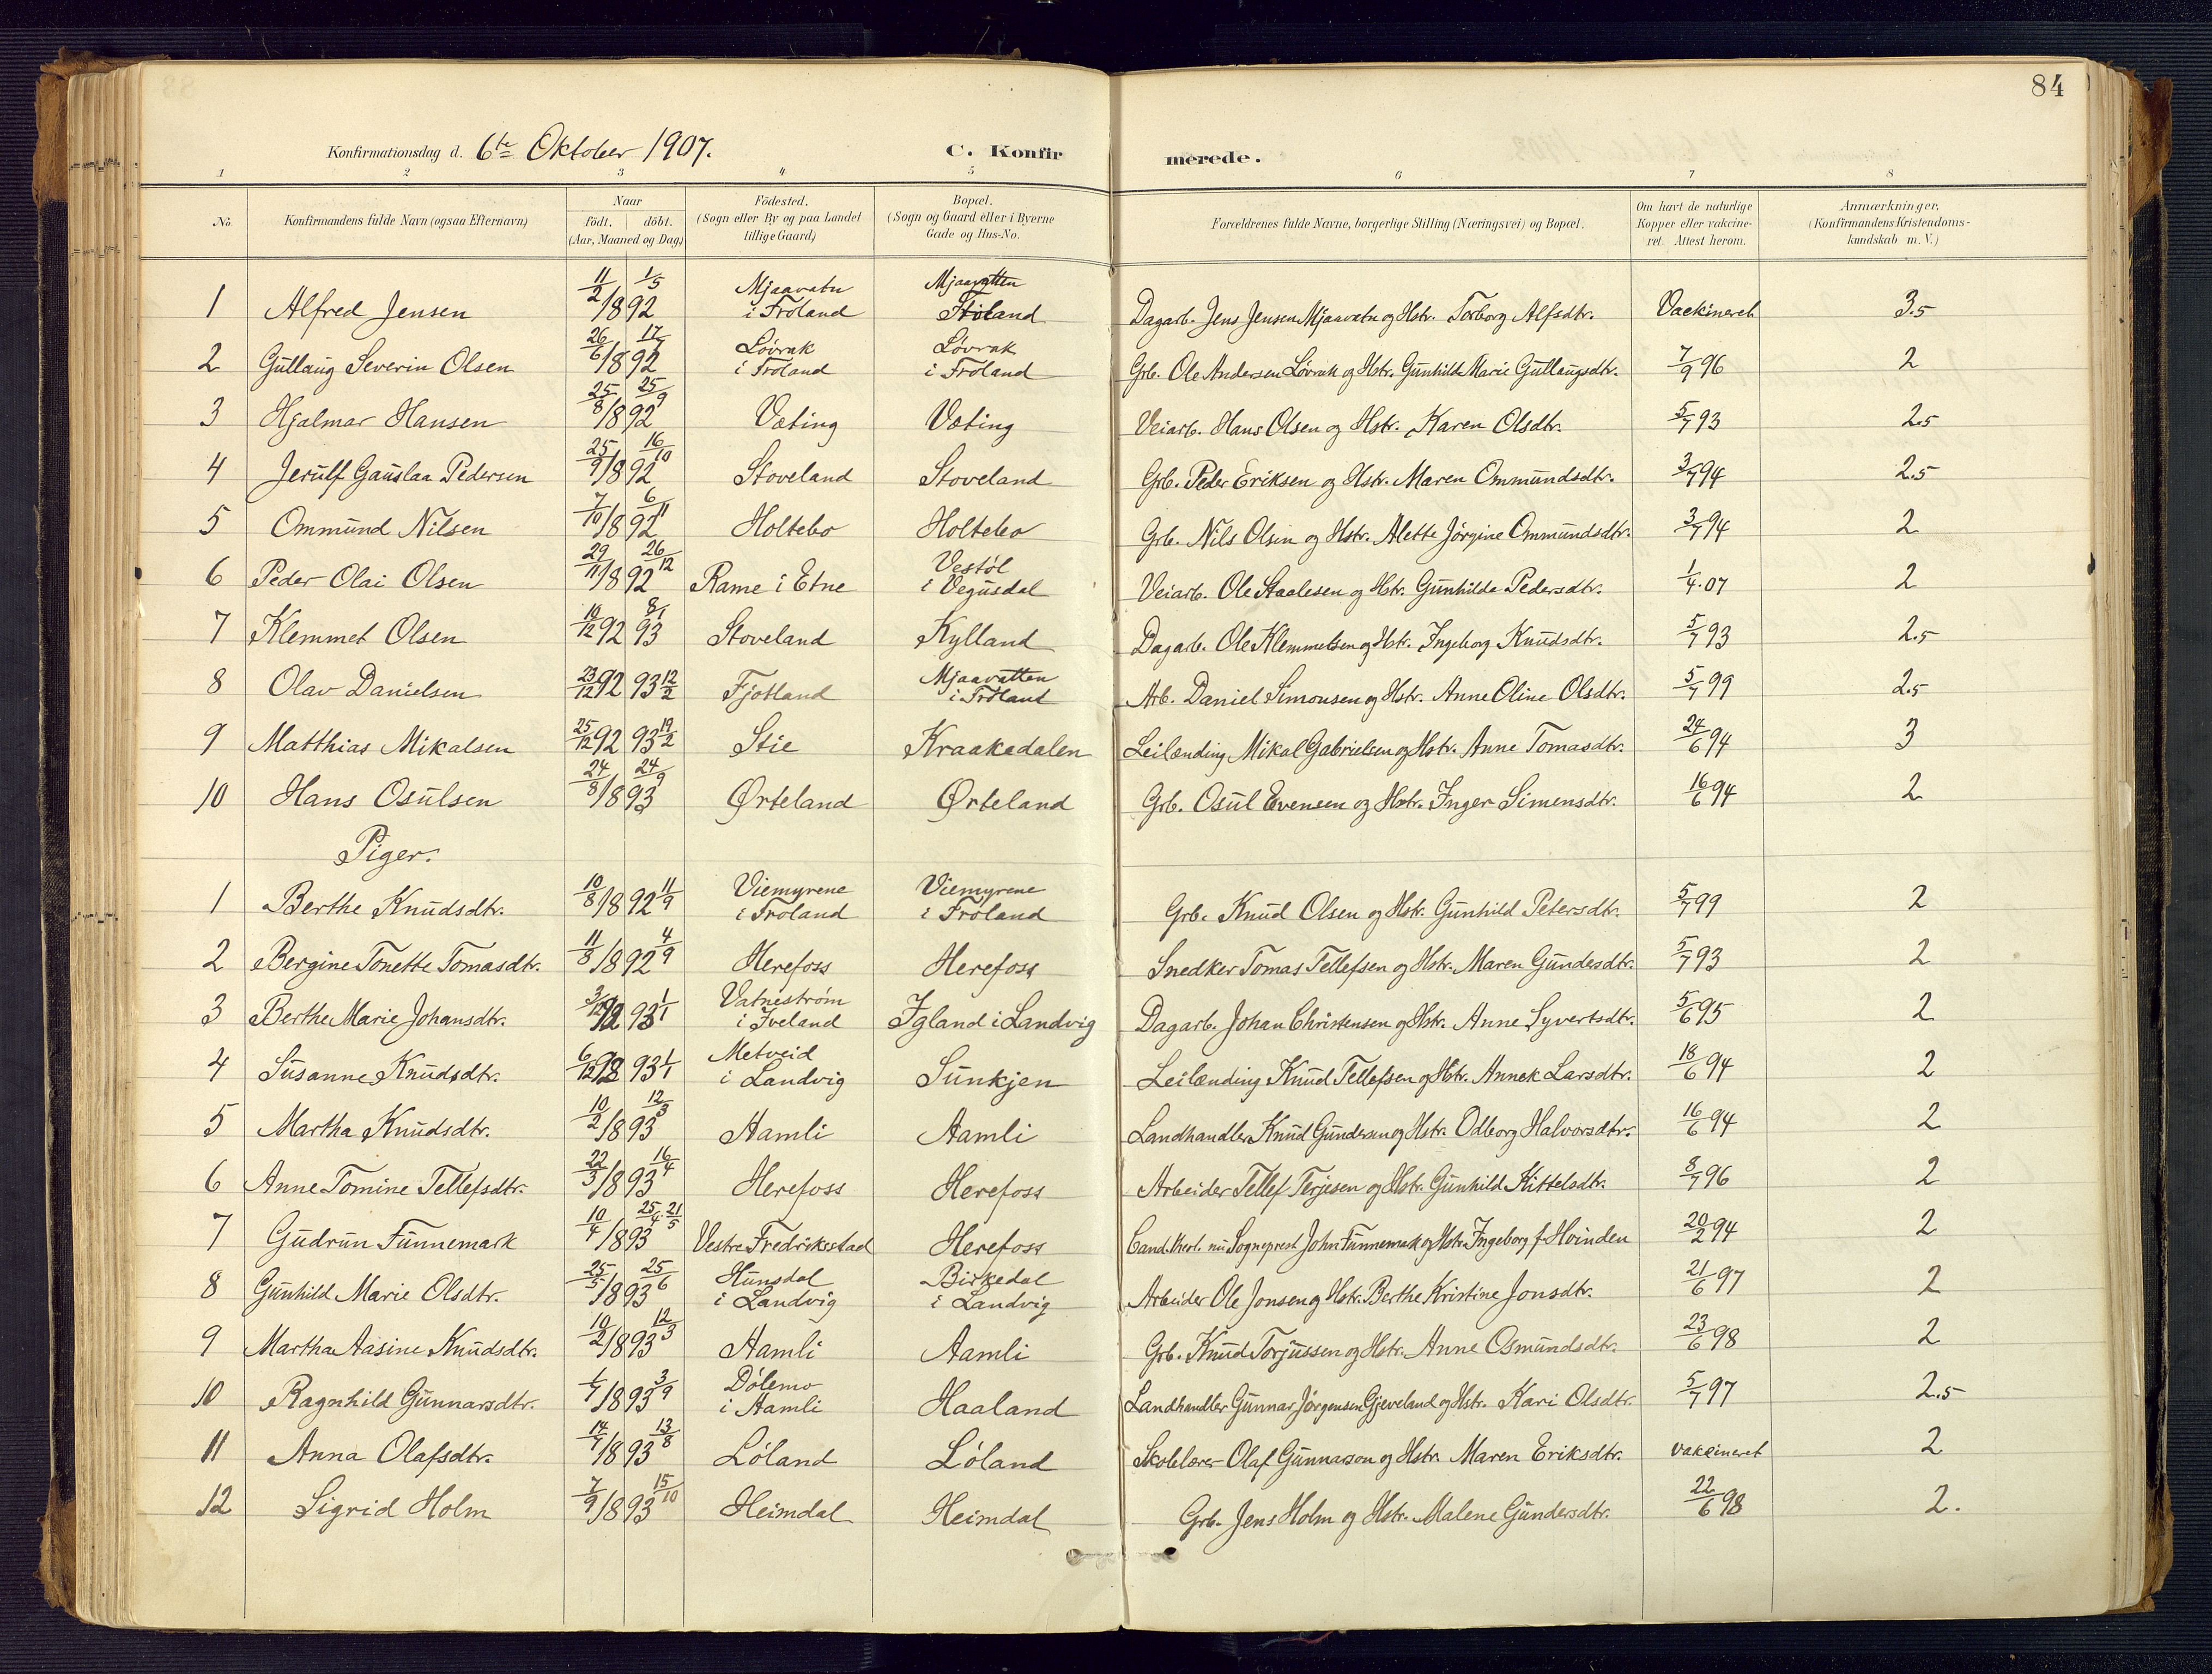 84
Konfirmationsdag d. 6te Oktober 1907. C. Konfirmerede.
1 2 3 4 5 6 7 8
No. Konfirmandens fulde Navn (ogsaa Efternavn) Naar födt. döbt. (Aar, Maaned og Dag) Födested. (Sogn eller By og paa Landet tillige Gaard) Bopæl. (Sogn og Gaard eller i Byerne Gade og Hus-No. Forældrenes fulde Navne, borgerlige Stilling (Næringsvei) og Bopæl. Om havt de naturlige Kopper eller vakcineret. Attest herom. Anmærkninger. (Konfirmandens Kristendomskundskab m. V.)
1 Alfred Jensen 11/2 1/5 1892 Mjaavatn i Froland Mjaavatten Froland Dagarb. Jens Jensen Mjaavatn og Hstr. Torborg Alfsdtr. Vackineret 3.5
2 Gullaug Severin Olsen 26/6 17/7 1892 Lövrak i Froland Lövrak i Froland Grb. Ole Andersen Lövrak og Hstr. Gunhild Marie Gullaugsdtr. 7/9 96 2
3 Hjalmar Hansen 25/8 25/9 1892 Væting Væting Veiarb. Hans Olsen og Hstr. Karen Olsdtr. 5/7 93 2.5
4 Jerulf Gauslaa Pedersen 25/9 16/10 1892 Stoveland Stoveland Grb. Peder Eriksen og Hstr. Maren Ommundsdtr. 3/7 94 2.5
5 Ommund Nilsen 7/10 6/11 1892 Holtebo Holtebo Grb. Nils Olsen og Hstr. Alette Jörgine Ommundsdtr. 3/7 94 2
6 Peder Olai Olsen 29/11 26/12 1892 Rame i Etne Vestöl i Vegusdal Veiarb. Ole Staalesen og Hstr. Gunhilde Pedersdtr. 1/4.07 2
7 Klemmet Olsen 10/12 92 8/1 93 Stoveland Kylland Dagarb. Ole Klemmetsen og Hstr. Ingeborg Knudsdtr. 5/7 93 2.5
8 Olav Danielsen 23/12 92 93 12/2 Fjotland Mjaavatten i Froland Arb. Daniel Simonsen og Hstr. Anne Oline Olsdtr. 5/7 99 2.5
9 Matthias Mikalsen 25/12 92 93 19/2 Stie Kraakedalen Leilænding Mikal Gabrielsen og Hstr. Anne Tomasdtr. 24/6 94 3
10 Hans Osulsen 24/8 24/9 1893 Örteland Örteland Grb. Osul Evensen og Hstr. Inger Simensdtr. 16/6 94 2
Piger.
1 Berthe Knudsdtr. 10/8 1892 11/9 Viemyrene i Froland Viemyrene i Froland Grb. Knud Olsen og Hstr. Gunhild Petersdtr. 5/7 99 2
2 Bergine Tonette Tomasdtr. 11/8 1892 4/9 Herefoss Herefoss Snedker Tomas Tellefsen og Hstr. Maren Gundesdtr. 5/7 93 2
3 Berthe Marie Johansdtr. 3/12 92 93 1/1 Vatneström i Iveland Igland i Landvig Dagarb. Johan Christensen og Hstr. Anne Syvertsdtr. 5/6 95 2
4 Susanne Knudsdtr. 6/12 92 93 1/1 Metveid i Landvig Sunkjen Leilænding Knud Tellefsen og Hstr. Annek Larsdtr. 18/6 94 2
5 Martha Knudsdtr. 10/2 12/3 1893 Aamli Aamli Landhandler Knud Gundersen og Hstr. Odborg Halvorsdtr. 16/6 94 2
6 Anne Tomine Tellefsdtr. 22/3 16/4 1893 Herefoss Herefoss Arbeider Tellef Terjesen og Hstr. Gunhild Kittelsdtr. 8/7 96 2
7 Gudrun Funnemark 10/4 25/4. 21/5 1893 Vestre Fredriksstad Herefoss Cand. theol. nu Sogneprest John Funnemark og Hstr. Ingeborg f. Hvinden 20/2 94 2
8 Gunhild Marie Olsdtr. 25/5 25/6 1893 Hunsdal i Landvig Birkedal i Landvig Arbeider Ole Jonsen og Hstr. Berthe Kristine Jonsdtr. 21/6 97 2
9 Martha Aasine Knudsdtr. 10/2 12/3 1893 Aamli Aamli Grb. Knud Torjussen og Hstr. Anne Osmundsdtr. 23/6 98 2
10 Ragnhild Gunnarsdtr. 1/7 1893 3/9 Dölemo i Aamli Haaland Landhandler Gunnar Jörgensen Gjeveland og Hstr. Kari Olsdtr. 5/7 97 2.5
11 Anna Olafsdtr. 14/7 1893 13/8 Löland Löland Skolelærer Olaf Gunnarson og Hstr. Maren Eriksdtr. vakcineret 2
12 Sigrid Holm 7/9 1893 15/10 Heimdal Heimdal Grb. Jens Holm og Hstr. Malene Gundersdtr. 22/6 98 2.